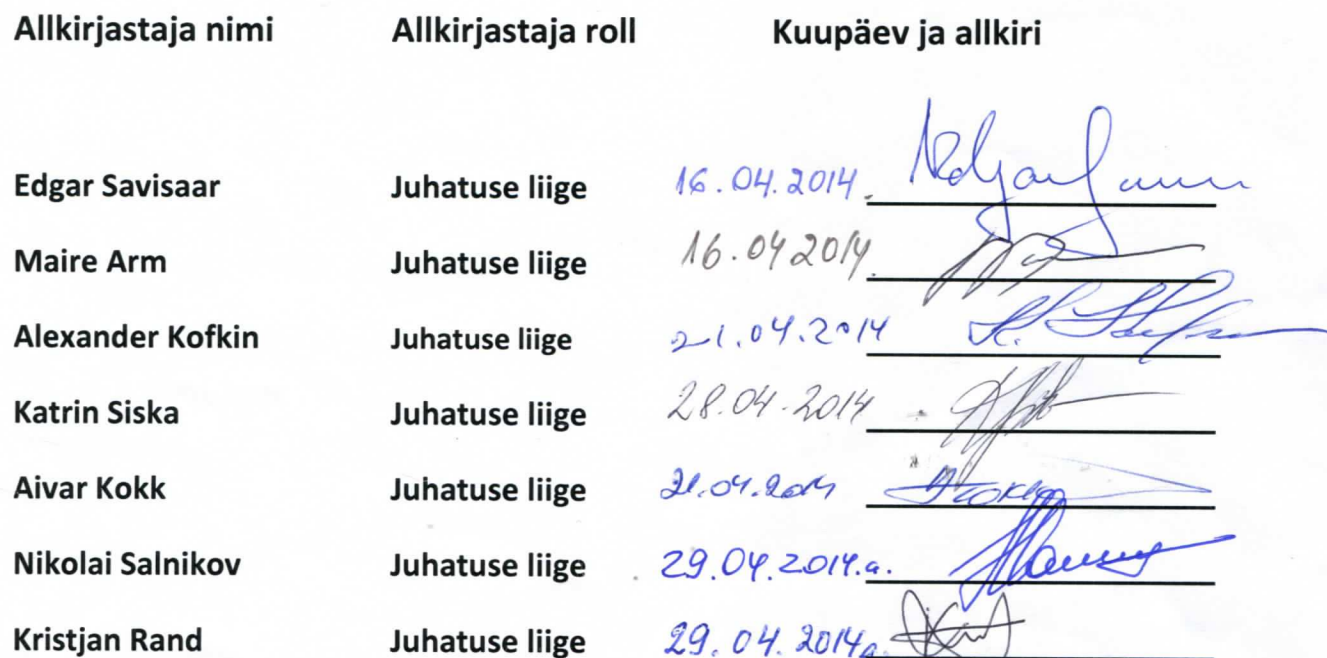 Allkirjastaja nimi Allkirjastaja roll Kuupäev ja allkiri
Edgar Savisaar Juhatuse liige 16.04.2014.
Maire Arm Juhatuse liige 16.04 2014.
Alexander Kofkin Juhatuse liige 21.04.2014
Katrin Siska Juhatuse liige 28.04.2014
Aivar Kokk Juhatuse liige 21.04.2014
Nikolai Salnikov Juhatuse liige 29.04.2014.a.
Kristjan Rand Juhatuse liige 29.04.2014a.